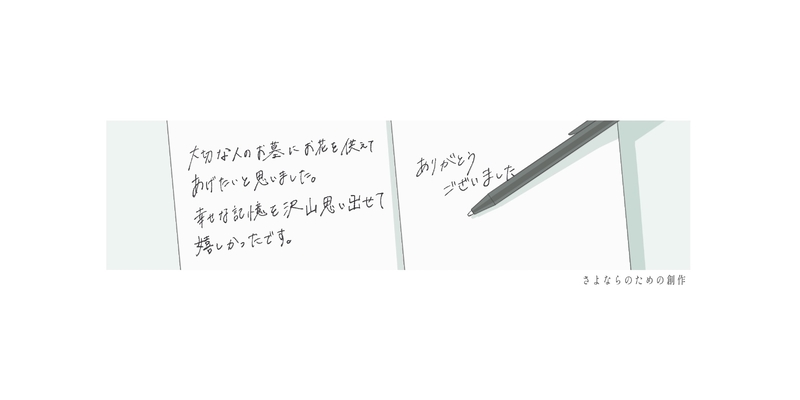 大切な人のお墓にお花を供えて
あげたいと思いました。
幸せな記憶を沢山思い出せて
嬉しかったです。
ありがとう
ございました
さよならのための創作